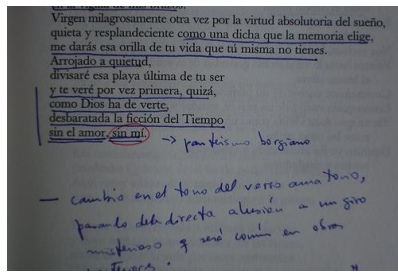 Virgen milagrosamente otra vez por la virtud absolutoria del sueño,
quieta y resplandeciente como una dicha que la memoria elige,
me darás esa orilla de tu vida que tú misma no tienes.
Arrojado a quietud,
divisaré esa playa última de tu ser
y te veré por vez primera, quizá,
como Dios ha de verte,
desbaratada la ficción del Tiempo
sin el amor, sin mí.
→ panteísmo borgiano
— cambio en el tono del verso amatorio,
pasando de la directa alusión a un giro
misterioso q será común en obras